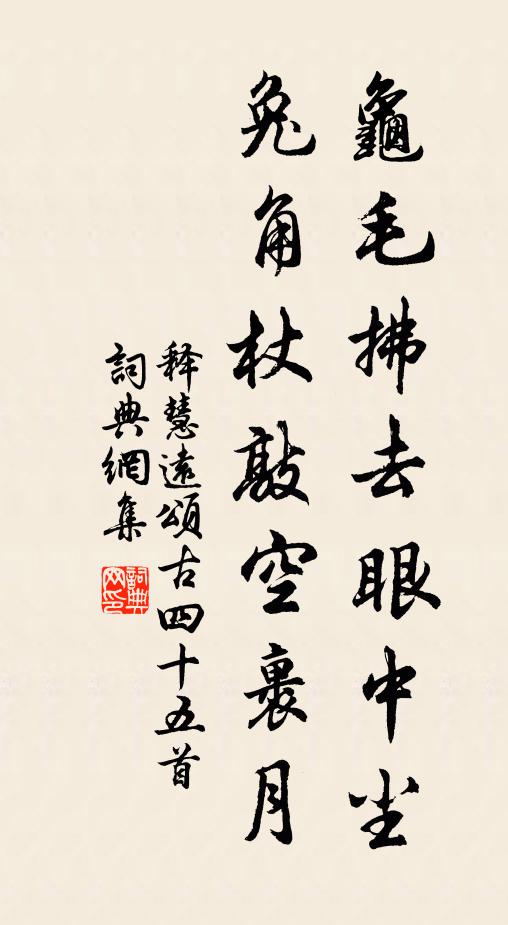 龜毛拂去眼中尘
兔角杖敲空裹月
释慧遠頌古四十五首
詞典網集
詞典网印